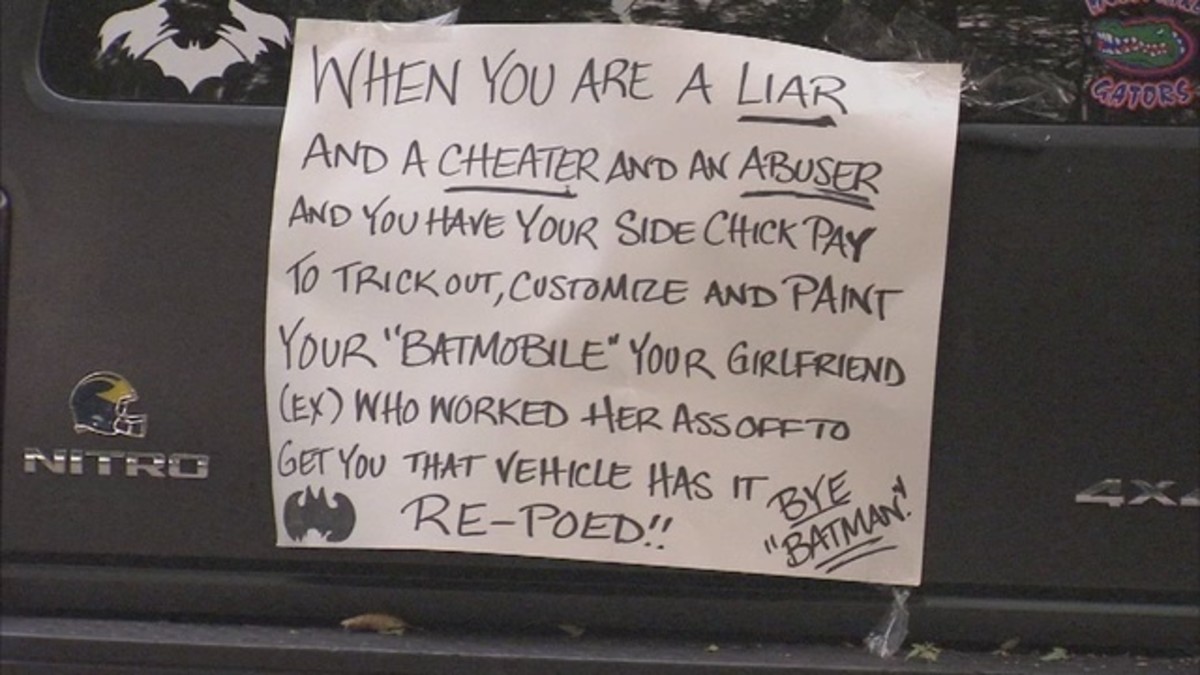 GATORS
WHEN YOU ARE A LIAR
AND A CHEATER AND AN ABUSER
AND YOU HAVE YOUR SIDE CHICK PAY
TO TRICK OUT, CUSTOMIZE AND PAINT
YOUR "BATMOBILE" YOUR GIRLFRIEND
(EX) WHO WORKED HER ASS OFF TO
GET YOU THAT VEHICLE HAS IT
RE-POED!!
BYE
"BATMAN."
NITRO